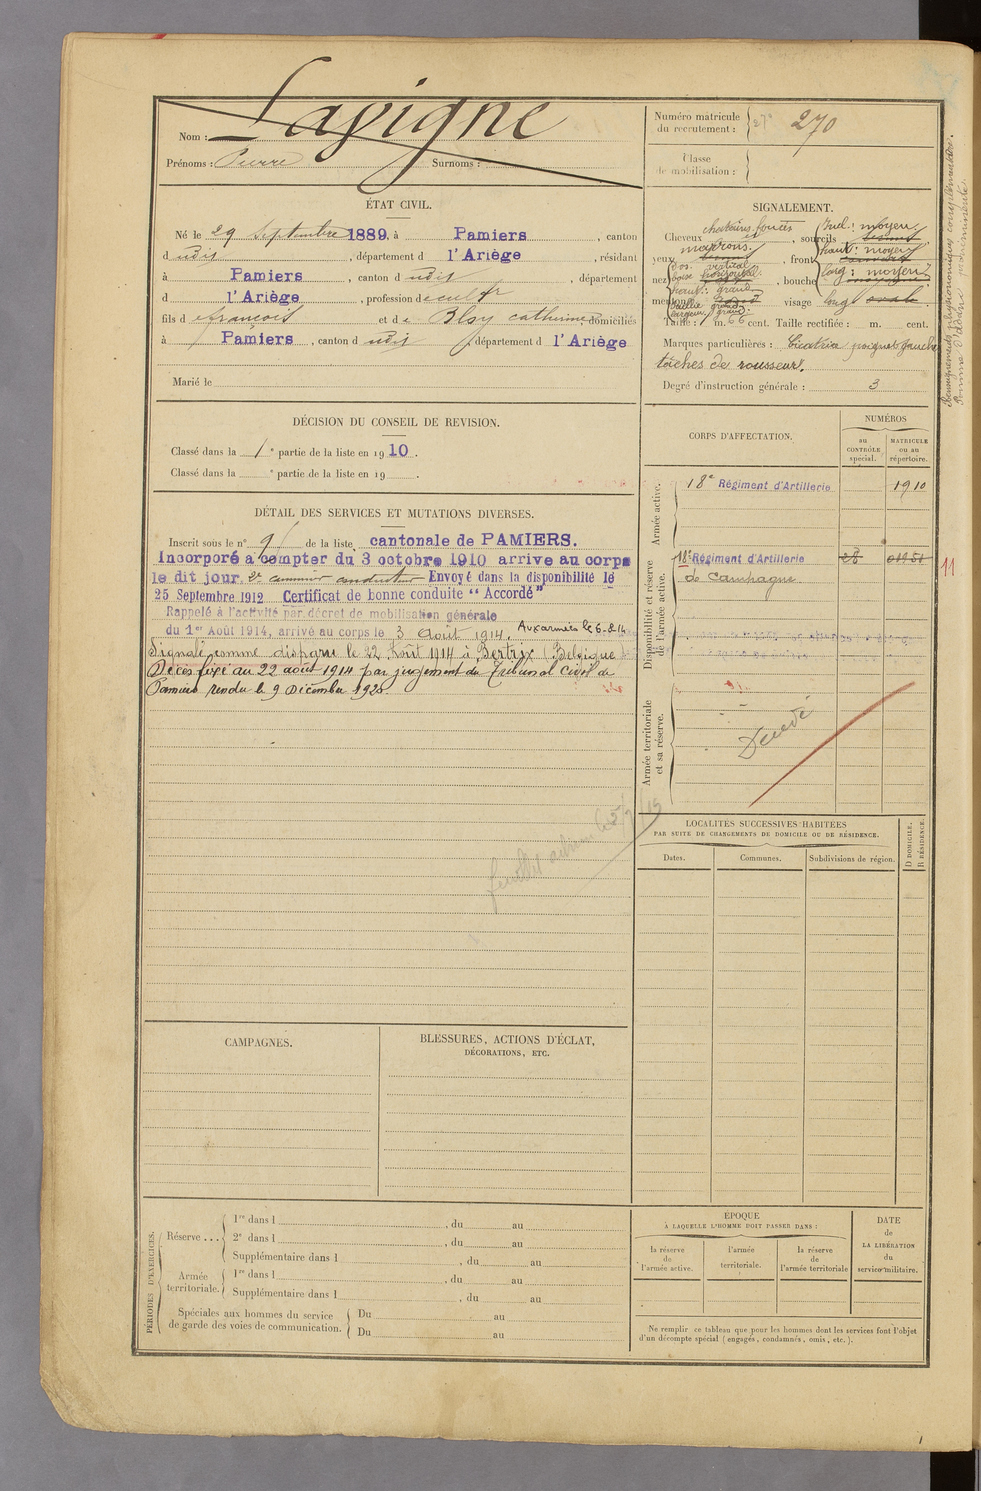 Nom : Lavigne
Prénoms : Pierre Surnoms :
Numéro matricule du recrutement : 270
Classe de mobilisation :
ÉTAT CIVIL.
Né le 29 Septembre 1889, à Pamiers, canton
d udit, département d l'Ariège, résidant
à Pamiers, canton d udit département
d l'Ariège, profession de cult
fils de françois et de Blay catherine, domiciliés
à Pamiers, canton d udit, département d l'Ariège
Marié le
DÉCISION DU CONSEIL DE REVISION.
Classé dans la 1e partie de la liste en 1910.
Classé dans la e partie de la liste en 19 .
DÉTAIL DES SERVICES ET MUTATIONS DIVERSES.
Inscrit sous le n° 9 de la liste cantonale de PAMIERS.
Incorporé à compter du 3 octobre 1910 arrive au corps
le dit jour, 2e cannonier conducteur Envoyé dans la disponibilité le
25 Septembre 1912 Certificat de bonne conduite "Accordé"
Rappelé à l'activité par décret de mobilisation générale
du 1er Août 1914, arrivé au corps le 3 Août 1914. Aux armées le 6-8-14
Signalé comme disparu le 22 Août 1914 à Bertrix (Belgique
Décès fixé au 22 août 1914 par jugement du Tribunal Civil de
Pamiers rendu le 9 Décembre 1920
SIGNALEMENT.
Cheveux chatains foncés, sourcils
yeux marrons, front
Incl : moyen
haut : moyen
larg : moyen
nez dos vertical, bouche
base horizontal
haut : grand
saillie grand
largeur grand
menton visage long ovale
Taille : 1 m. 66 cent. Taille rectifiée : m. cent.
Marques particulières : Cicatrice poignet gauche
tâches de rousseur.
Degré d'instruction générale : 3
Renseignements physionomiques complémentaires.
Pomme d'adam proéminente.
CORPS D'AFFECTATION.
NUMÉROS
au CONTRÔLE spécial.
MATRICULE ou au répertoire.
Armée active.
18e Régiment d'Artillerie 1910
Disponibilité et réserve de l'armée active.
18e Régiment d'Artillerie 28 01951
de Campagne
11
Armée territoriale et sa réserve.
Décédé
LOCALITÉS SUCCESSIVES HABITÉES
PAR SUITE DE CHANGEMENTS DE DOMICILE OU DE RÉSIDENCE.
Dates. Communes. Subdivisions de région.
D DOMICILE. R RÉSIDENCE.
CAMPAGNES.
BLESSURES, ACTIONS D'ÉCLAT,
DÉCORATIONS, ETC.
PÉRIODES D'EXERCICES.
Réserve ...
1re dans l , du au
2e dans l , du au
Supplémentaire dans l , du au
Armée territoriale.
1re dans l , du au
Supplémentaire dans l , du au
Spéciales aux hommes du service
de garde des voies de communication.
Du au
Du au
ÉPOQUE
À LAQUELLE L'HOMME DOIT PASSER DANS :
la réserve de l'armée active.
l'armée territoriale.
la réserve de l'armée territoriale
DATE de LA LIBÉRATION du service militaire.
Ne remplir ce tableau que pour les hommes dont les services font l'objet
d'un décompte spécial (engagés, condamnés, omis, etc.).